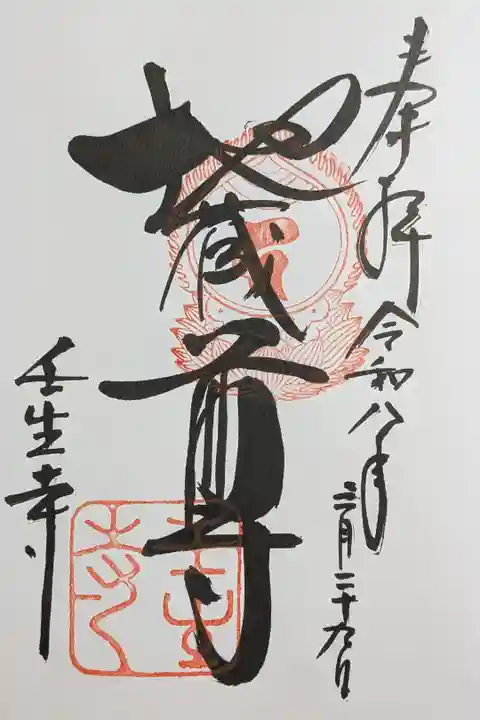 奉拝 令和八年 三月二十九日
地蔵尊
壬生寺